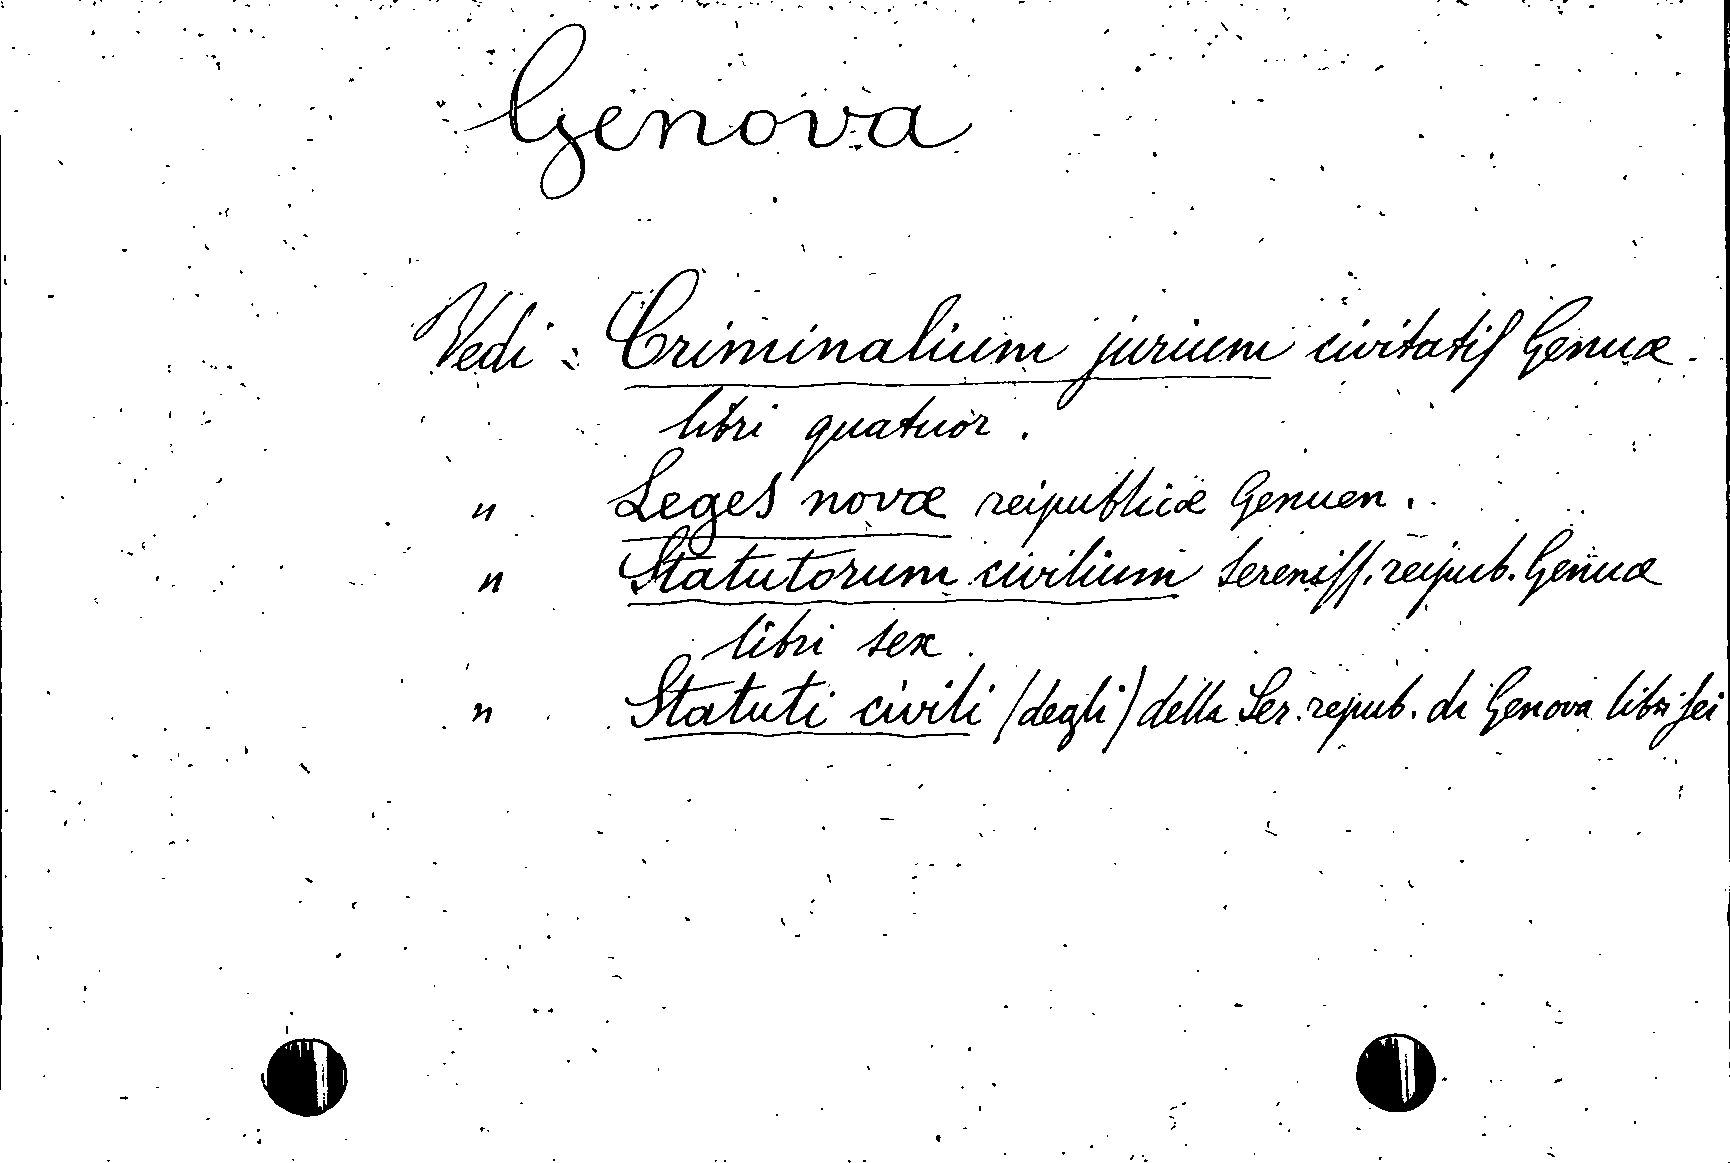 Genova
Vedi: Criminalium jurium civitatis Genuæ.
libri quatuor.
" Leges novæ reipublicæ Genuen.
" Statutorum civilium sereniss. reipub. Genuæ
libri sex.
" Statuti civili (degli) della Ser. repub. di Genova libri sei